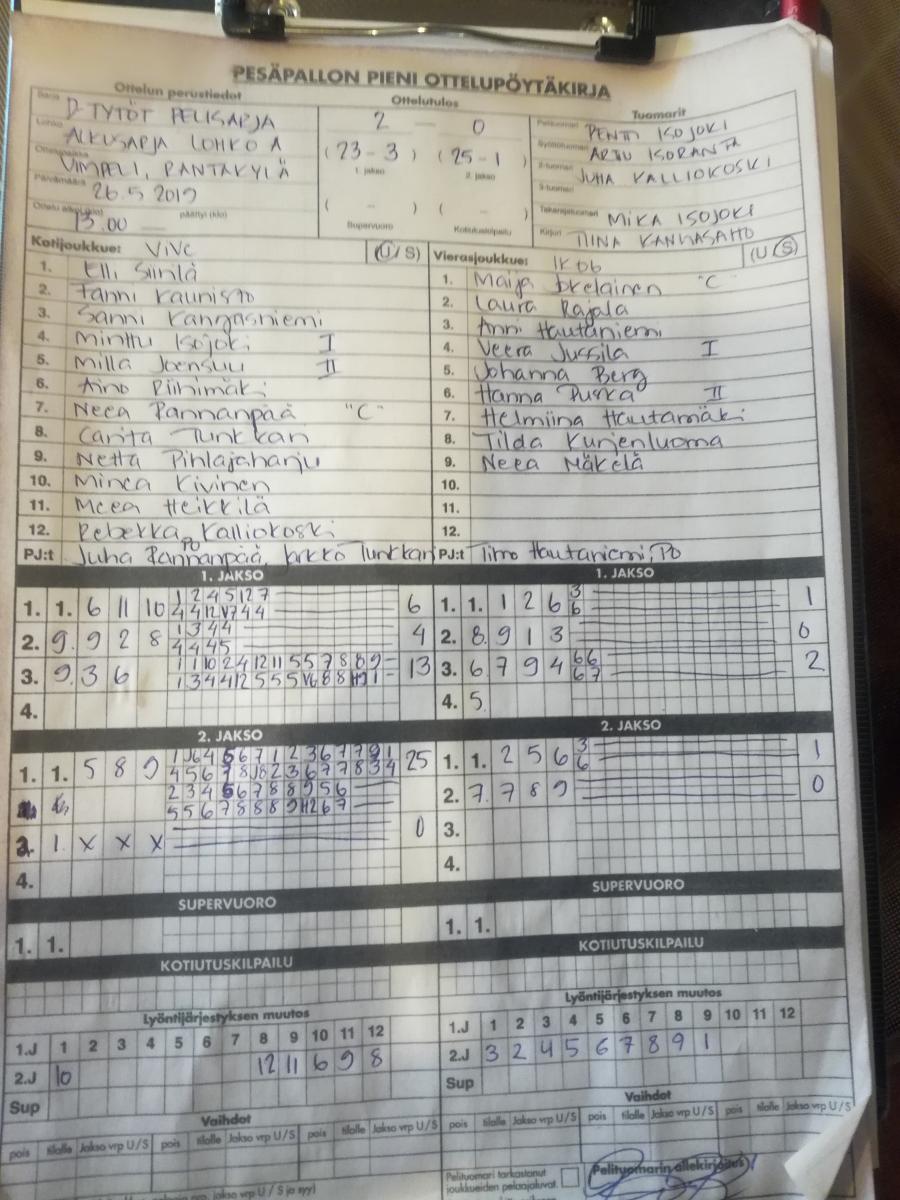 PESÄPALLON PIENI OTTELUPÖYTÄKIRJA
Ottelun perustiedot
Ottelutulos
Tuomarit
Sarja D-TYTÖT PELISARJA
Lohko ALKUSARJA LOHKO A
Ottelupaikka VIMPELI, RANTAKYLÄ
Päivämäärä 26.5 2019
Ottelu alkoi (klo) 13.00 päättyi (klo)
2 — 0
(23 - 3) (25 - 1)
1. jakso 2. jakso
( - ) ( - )
Supervuoro Kotiutuskilpailu
Pelituomari PENTTI ISOJOKI
Syöttötuomari ARTTU ISORANTA
2-tuomari JUHA KALLIOKOSKI
3-tuomari
Takarajatuomari MIKA ISOJOKI
Kirjuri TIINA KANGASAHO
Kotijoukkue: ViVe (U/S)
1. Elli Siinilä
2. Fanni Kaunisto
3. Sanni Kangasniemi
4. Minttu Isojoki I
5. Milla Joensuu II
6. Aino Riihimäki
7. Neea Pannanpää "C"
8. Carita Tunkkari
9. Netta Pihlajaharju
10. Minea Kivinen
11. Meea Heikkilä
12. Rebekka Kalliokoski
PJ:t Juha Pannanpää, PO Jarkko Tunkkari
Vierasjoukkue: (U/S)
1. Maija "C"
2. Laura Rajala
3. Anni Hautaniemi
4. Veera Jussila I
5. Johanna Berg
6. Hanna Puska II
7. Helmiina Hautamäki
8. Tilda Kurjenluoma
9. Neea Mäkelä
10.
11.
12.
PJ:t Timo Hautaniemi, PO
1. JAKSO
1. 1. 6 11 10 1 2 4 5 12 7 6
4 4 12 V7 4 4
2. 9. 9 2 8 1 3 4 4 4
4 4 4 5
3. 9. 3 6 1 1 10 2 4 12 11 5 5 7 8 8 9 - 13
1 3 4 4 12 5 5 5 V6 8 8 1 -
4.
1. JAKSO
1. 1. 1 2 6 3 1
6
2. 8. 9 1 3 0
3. 6. 7 9 4 6 6 2
6 7
4. 5.
2. JAKSO
1. 1. 5 8 9 25
2 3 4 5 6 7 8 8 9 5 6
5 5 6 7 8 8 8 9 2 6 7
2. 1. x x x 0
4.
2. JAKSO
1. 1. 2 5 6 3 1
6
2. 7. 7 8 9 0
3.
4.
SUPERVUORO
1. 1.
SUPERVUORO
1. 1.
KOTIUTUSKILPAILU
KOTIUTUSKILPAILU
Lyöntijärjestyksen muutos
1.J 1 2 3 4 5 6 7 8 9 10 11 12
2.J 10 12 11 6 9 8
Sup
Lyöntijärjestyksen muutos
1.J 1 2 3 4 5 6 7 8 9 10 11 12
2.J 3 2 4 5 6 7 8 9 1
Sup
Vaihdot
pois tilalle Jakso vrp U/S pois tilalle Jakso vrp U/S pois tilalle Jakso vrp U/S
Vaihdot
pois tilalle Jakso vrp U/S pois tilalle Jakso vrp U/S pois tilalle Jakso vrp U/S
jakso vrp U / S ja syy)
Pelituomari tarkastanut
joukkueiden pelaajaluvat.
Pelituomarin allekirjoitus